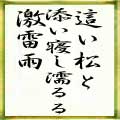 這い松と
添い寝し濡るる
激雷雨